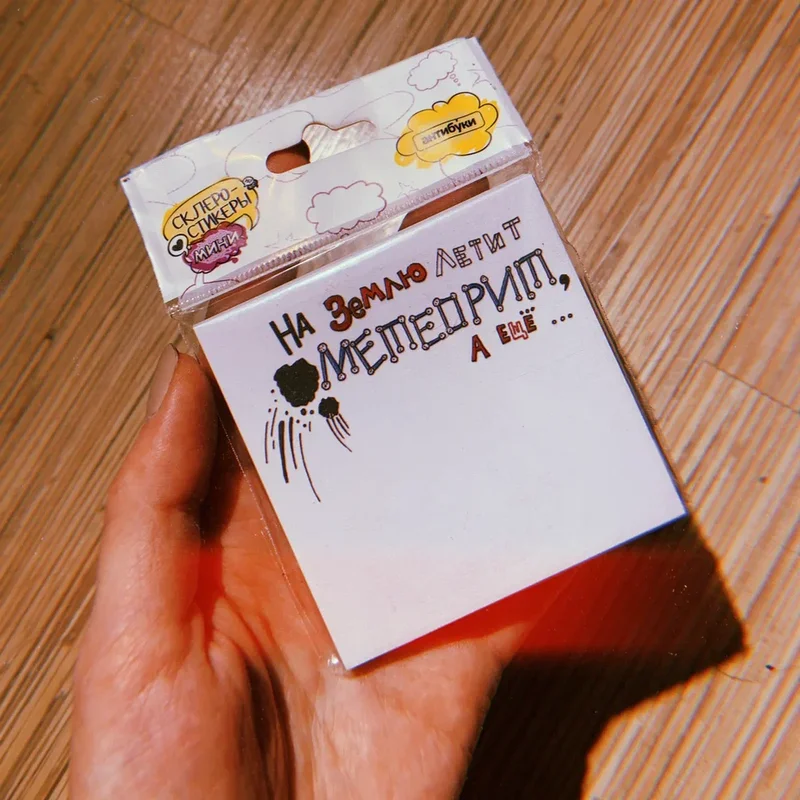 антибуки
СКЛЕРО-
СТИКЕРЫ
МИНИ
НА ЗЕМЛЮ ЛЕТИТ
МЕТЕОРИТ,
А ЕЩЁ ...